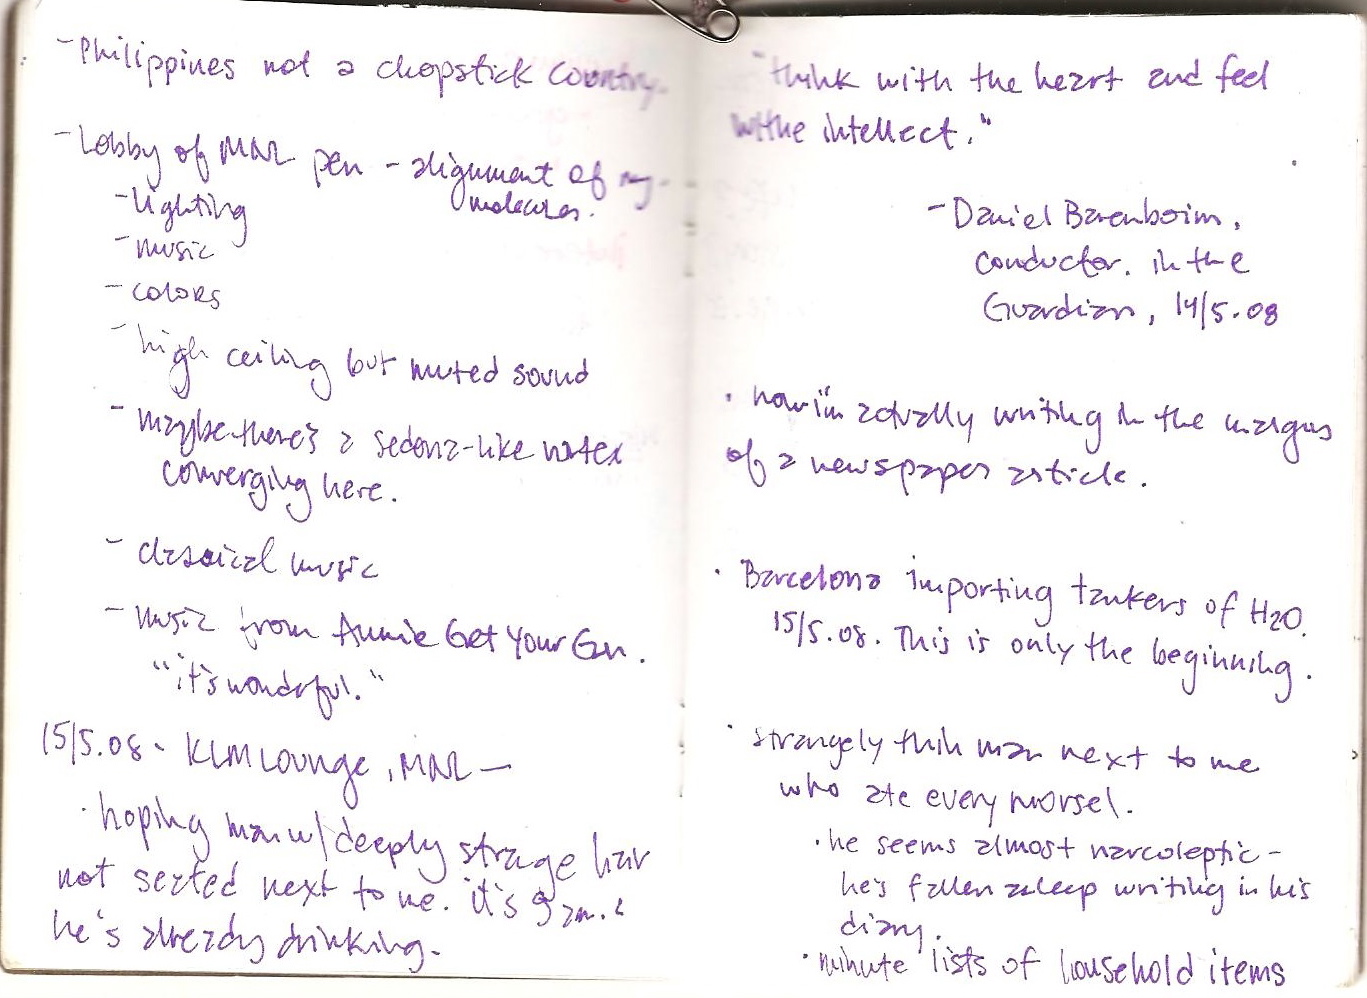 - Philippines not a chopstick country.
- Lobby of MNL pen - alignment of my
molecules.
- lighting
- music
- colors
- high ceiling but muted sound
- maybe there's a sedona-like vortex
converging here.
- classical music
- music from Annie Get Your Gun.
"it's wonderful."
15/5.08 - KLM Lounge, MNL -
· hoping man w/ deeply strage hair
not seated next to me. it's 9 am. &
he's already drinking.
"think with the heart and feel
w/the intellect."
- Daniel Barenboim,
conductor. in the
Guardian, 14/5.08
· now i'm actually writing in the margins
of a newspaper article.
· Barcelona importing tankers of H2O.
15/5.08. This is only the beginning.
· strangely thin man next to me
who ate every morsel.
· he seems almost narcoleptic -
he's fallen asleep writing in his
diary.
· minute lists of household items